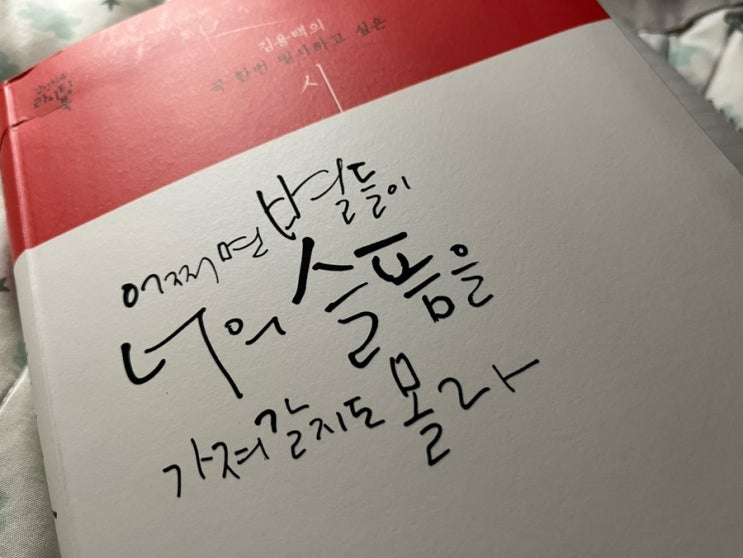 김용택의
꼭 한번 필사하고 싶은
시
라이팅
북
어쩌면 별들이
너의 슬픔을
가져갈지도 몰라